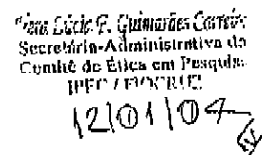 Ana Lúcia F. Guimarães Correia
Secretária-Administrativa do
Comitê de Ética em Pesquisa
IPEC / FIOCRUZ
12/01/04